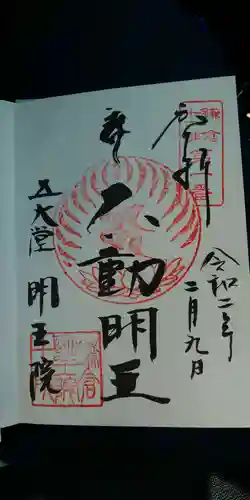 奉拝
令和二年
二月九日
不動明王
五大堂
明王院